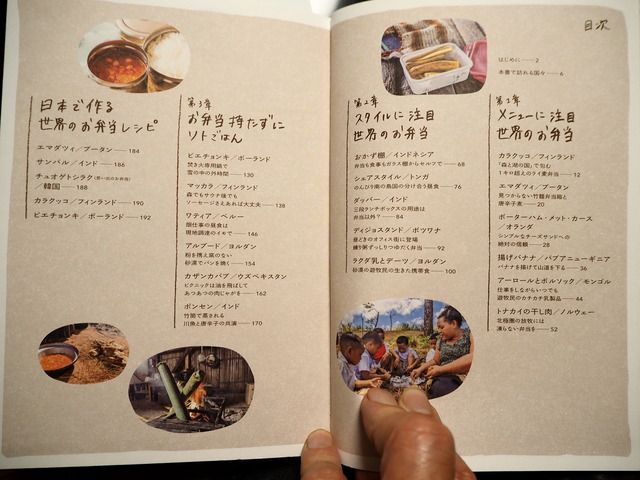 目次
はじめに——2
本書で訪れる国々——6
第1章
メニューに注目
世界のお弁当
カラクッコ／フィンランド
「森と湖の国」で包む
1キロ超えのライ麦弁当——12
エマダツィ／ブータン
見つからない竹籠弁当箱と
唐辛子煮——20
ボーターハム・メット・カース
／オランダ
シンプルなチーズサンドへの
絶対の信頼——28
揚げバナナ／パプアニューギニア
バナナを揚げて山道を下る——36
アーロールとボルソック／モンゴル
仕事をしながらいつでも
遊牧民のカチカチ乳製品——44
トナカイの干し肉／ノルウェー
北極圏の放牧には
凍らない弁当を——52
第2章
スタイルに注目
世界のお弁当
おかず棚／インドネシア
弁当も食事もガラス棚からセルフで——68
シェアスタイル／トンガ
のんびり南の島国の分け合う昼食——76
ダッバー／インド
三段ランチボックスの用途は
弁当以外？——84
ディジョスタンド／ボツワナ
昼どきのオフィス街に登場
練り粥ずっしりつゆだく弁当——92
ラクダ乳とデーツ／ヨルダン
砂漠の遊牧民の生きた携帯食——100
第3章
お弁当持たずに
ソトごはん
ビエチョンキ／ポーランド
焚き火専用鍋で
雪の中の外時間——130
マッカラ／フィンランド
森でもサウナ後でも
ソーセージさえあれば大丈夫——138
ワティア／ペルー
畑仕事の昼食は
現地調達のイモで——146
アルブード／ヨルダン
粉を携え窯のない
砂漠でパンを焼く——154
カザンカバブ／ウズベキスタン
ピクニックは油を飛ばして
あつあつの肉じゃがを——162
ボンセン／インド
竹筒で蒸される
川魚と唐辛子の共演——170
日本で作る
世界のお弁当レシピ
エマダツィ／ブータン——184
サンバル／インド——186
チュオゲトシラク(思い出のお弁当)
／韓国——188
カラクッコ／フィンランド——190
ビエチョンキ／ポーランド——192